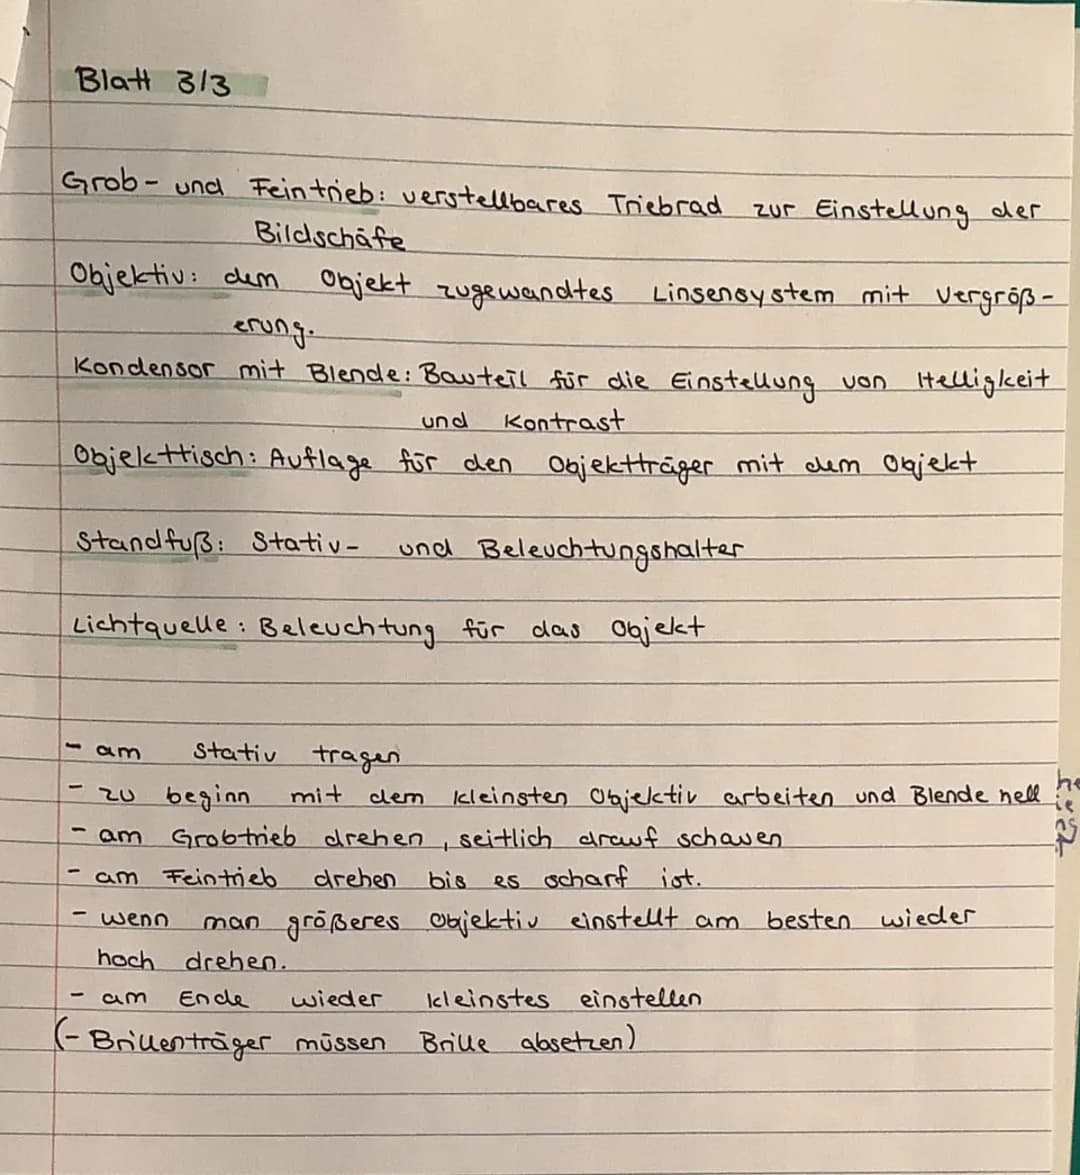 Blatt 3/3
Grob- und Feintrieb: verstellbares Triebrad zur Einstellung der
Bildschäfe
Objektiv: dem Objekt zugewandtes Linsensystem mit Vergröß-
erung.
Kondensor mit Blende: Bauteil für die Einstellung von Helligkeit
und Kontrast
Objekttisch: Auflage für den Objektträger mit dem Objekt
Standfuß: Stativ- und Beleuchtungshalter
Lichtquelle: Beleuchtung für das Objekt
- am Stativ tragen
- zu beginn mit dem kleinsten Objektiv arbeiten und Blende hell
- am Grobtrieb drehen, seitlich drauf schauen
- am Feintrieb drehen bis es scharf ist.
- wenn man größeres Objektiv einstellt am besten wieder
hoch drehen.
- am Ende wieder kleinstes einstellen
(- Brillenträger müssen Brille absetzen)